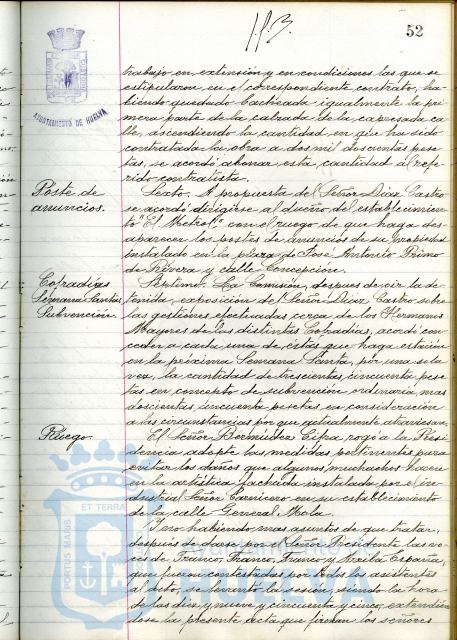 52
AYUNTAMIENTO DE HUELVA
trabajo en extensión y en condiciones las que se
estipularon en el correspondiente contrato, ha-
biendo quedado bacheada igualmente la pri
mera parte de la calzada de la expresada ca
lle, ascendiendo la cantidad en que ha sido
contratada la obra a dos mil doscientas pese
tas, se acordó abonar esta cantidad al refe
rido contratista.
Poste de
anuncios.
Sexto. A propuesta del Señor Díaz Castro
se acordó dirigirse al dueño del establecimien
to "El Metro", con el ruego de que haga des
aparecer los postes de anuncios de su propiedad
instalado en la plaza de José Antonio Primo
de Rivera y calle Concepción.
Cofradías
Semana Santa
Subvención.
Septimo. La Comisión, despues de oir la de
tenida exposición del Señor Díaz Castro sobre
las gestiones efectuadas cerca de los Hermanos
Mayores de las distintas Cofradías, acordó con
ceder a cada una de éstas que haga estación
en la próxima Semana Santa, por una sola
vez, la cantidad de trescientas cincuenta pese
tas en concepto de subvención ordinaria, mas
doscientas cincuenta pesetas en consideración
a las circunstancias por que atraviesan.
Ruego.
El Señor Bermudez Cifra, rogó a la Presi
dencia adopte las medidas pertinentes para
evitar los daños que algunos muchachos hacen
en la artística fachada instalada por el in
dustrial Señor Carnicero en su establecimiento
de la calle General Mola.
Y no habiendo mas asuntos de que tratar,
despues de darse por el Señor Presidente las vo
ces de Franco, Franco, Franco y Arriba España,
que fueron contestadas por todos los asistentes
al acto, se levantó la sesión, siendo la hora
de las diez y nueve y cincuenta y cinco, extendién
dose la presente acta que firman los señores
PORTUS MARIS ET TERRAE
Ayuntamiento de
HUELVA